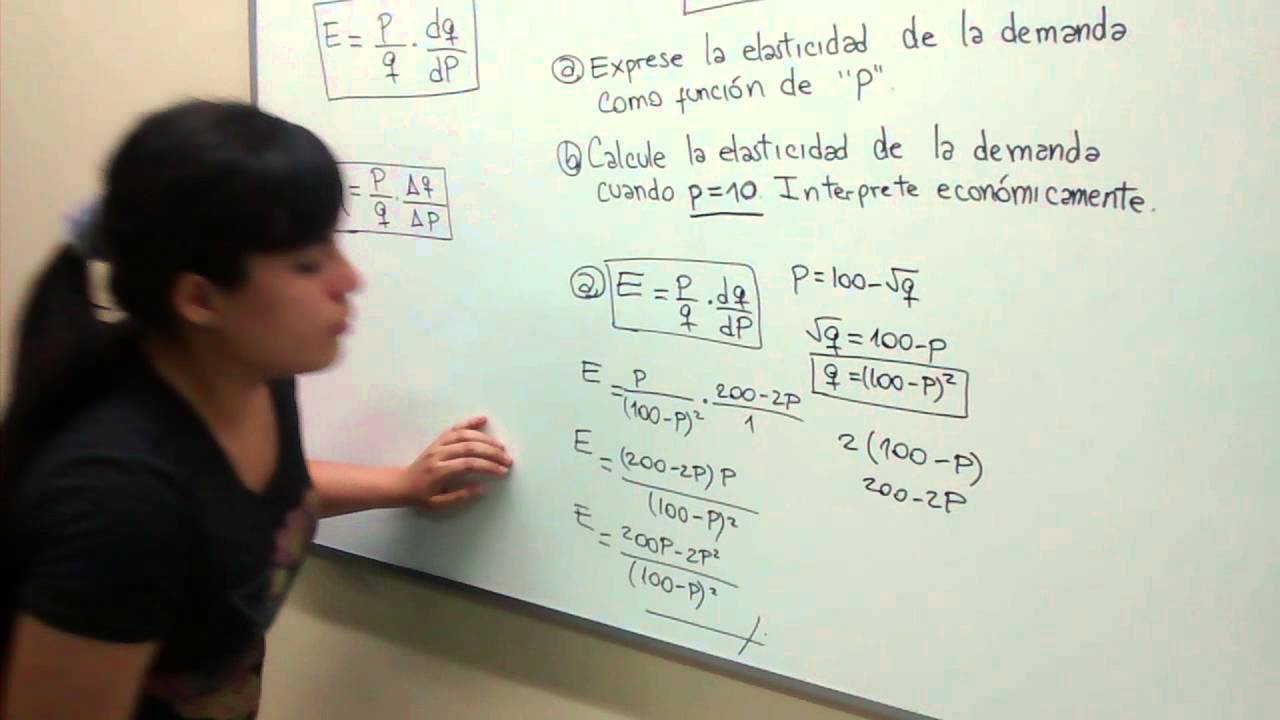 E = P/q · dq/dP
= P/q · Δq/ΔP
ⓐ Exprese la elasticidad de la demanda
como función de "P".
ⓑ Calcule la elasticidad de la demanda
cuando p=10. Interprete económicamente.
ⓐ E = P/q · dq/dP
P = 100-√q
√q = 100-p
q = (100-P)²
E = P/(100-P)² · 200-2P/1
2(100-P)
200-2P
E = (200-2P)P/(100-P)²
E = 200P-2P²/(100-P)²